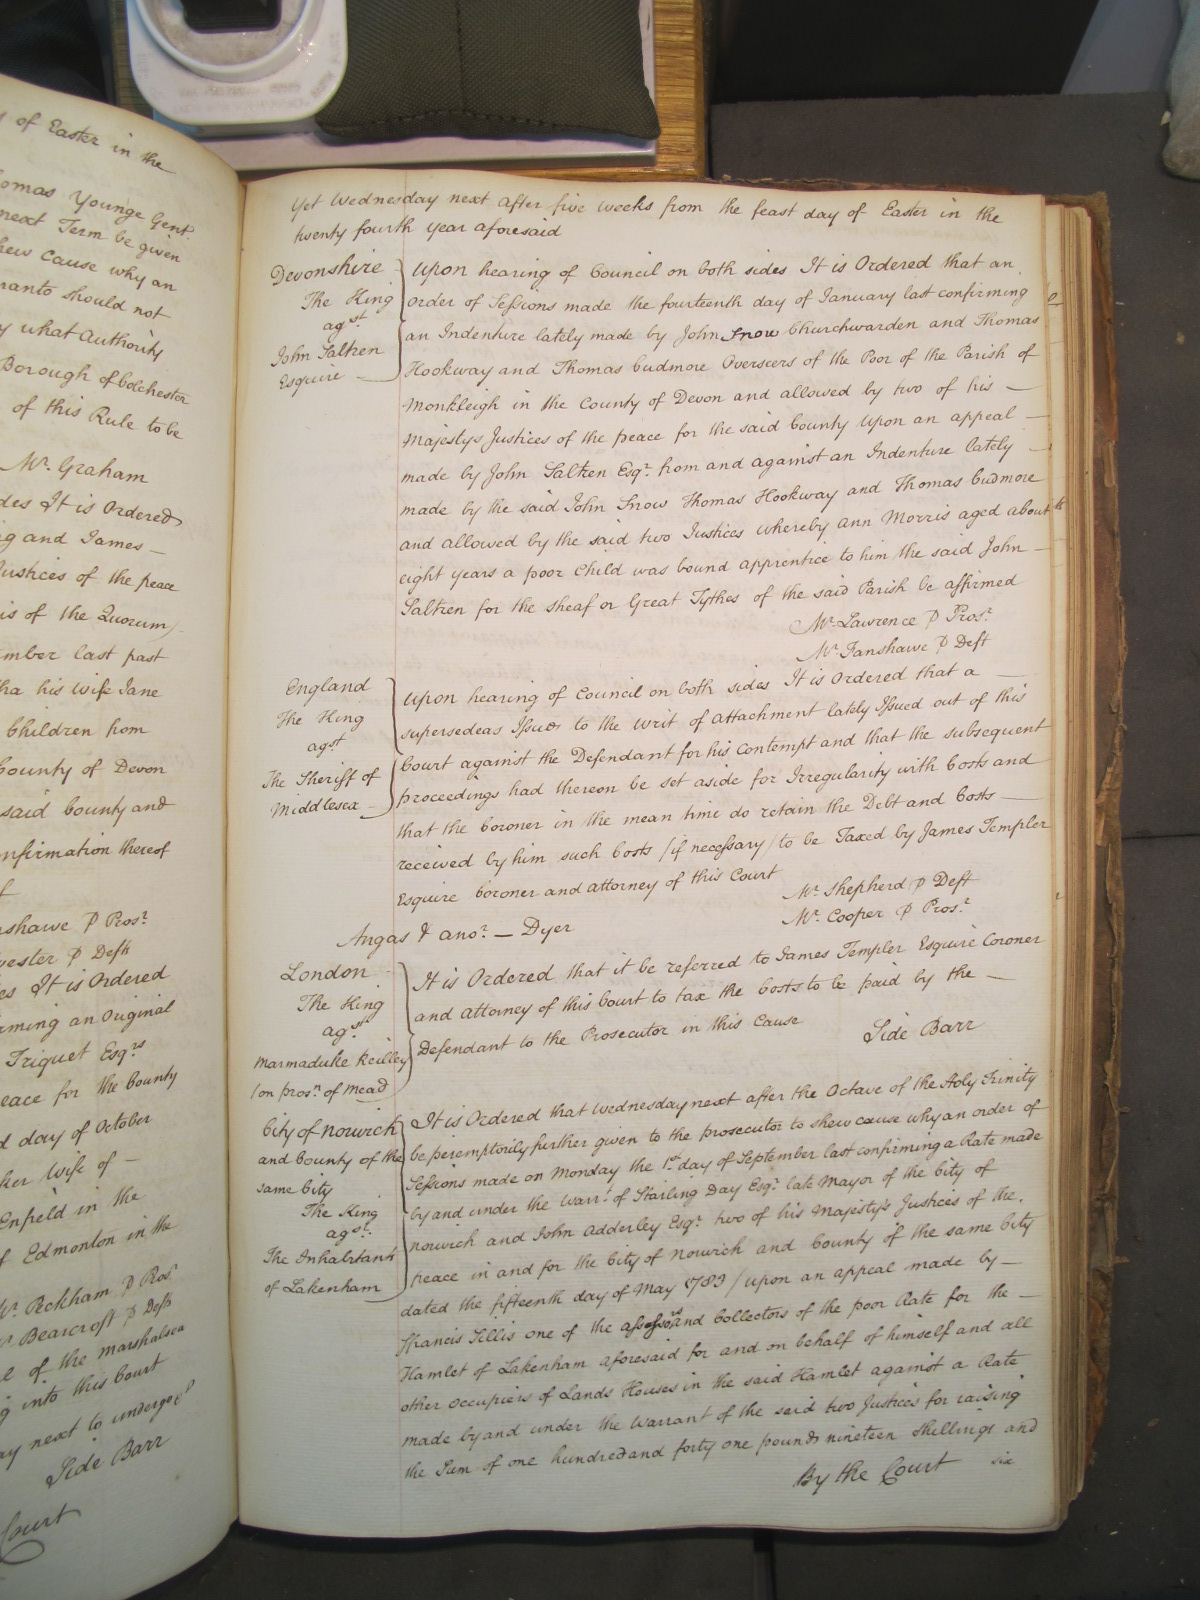 of Easter in the
Thomas Younge Gent
next Term be given
shew Cause why an
should not
by what Authority
Borough of Colchester
of this Rule to be
Mr. Graham
It is Ordered
and James —
Justices of the peace
is of the Quorum)
last past
his Wife Jane
Children from
County of Devon
said County and
confirmation thereof
Fanshawe P Pros.r
P Deft
It is Ordered
confirming an Original
Triquet Esq.rs
peace for the County
day of October
Wife of —
Enfield in the
of Edmonton in the
Mr. Peckham P Pros.r
Mr. Bearcroft P Deft
of the Marshalsea
into this Court
next to undergo
Side Barr
Court
Yet Wednesday next after five weeks from the feast day of Easter in the
twenty fourth Year aforesaid
Devonshire
The King
ag.st
John Saltren
Esquire —
Upon hearing of Council on both sides It is Ordered that an
order of Sessions made the fourteenth day of January last confirming
an Indenture lately made by John Snow Churchwarden and Thomas
Hookway and Thomas Cudmore Overseers of the Poor of the Parish of
Monkleigh in the County of Devon and allowed by two of his —
Majestys Justices of the peace for the said County Upon an appeal —
made by John Saltren Esq.r from and against an Indenture lately —
made by the said John Snow Thomas Hookway and Thomas Cudmore
and allowed by the said two Justices whereby Ann Morris aged about
eight years a poor Child was bound apprentice to him the said John —
Saltren for the sheaf or Great Tythes of the said Parish be affirmed
Mr. Lawrence P Pros.r
Mr. Fanshawe P Deft
England
The King
agst
The Sheriff of
Middlesex —
Upon hearing of Council on both sides It is Ordered that a —
supersedeas Issue to the Writ of Attachment lately Issued out of this
Court against the Defendant for his Contempt and that the subsequent
proceedings had thereon be set aside for Irregularity with Costs and
that the Coroner in the mean time do retain the Debt and Costs —
received by him such Costs (if necessary) to be Taxed by James Templer
Esquire Coroner and Attorney of this Court
Mr. Shepherd P Deft
Mr. Cooper P Pros.r
Angas & ano.r — Dyer
London
The King
ag.st
Marmaduke Keilley
(on pros.n of Mead
It is Ordered that it be referred to James Templer Esquire Coroner
and Attorney of this Court to tax the Costs to be paid by the —
Defendant to the Prosecutor in this Cause
Side Barr
City of Norwich
and County of the
same City
The King
ag.st
The Inhabitants
of Lakenham
It is Ordered that Wednesday next after the Octave of the Holy Trinity
be peremptorily further given to the prosecutor to shew cause why an order of
Sessions made on Monday the 1.st day of September last confirming a Rate made
by and under the Warr.t of Starling Day Esq.r late Mayor of the City of
Norwich and John Adderley Esq.r two of his Majesty's Justices of the
peace in and for the City of Norwich and County of the same City
dated the fifteenth day of May 1783 (upon an appeal made by —
Francis Tillis one of the assessors and Collectors of the poor Rate for the —
Hamlet of Lakenham aforesaid for and on behalf of himself and all
other occupiers of Lands Houses in the said Hamlet against a Rate
made by and under the Warrant of the said two Justices for raising
the Sum of one hundred and forty one pounds nineteen shillings and
six
By the Court